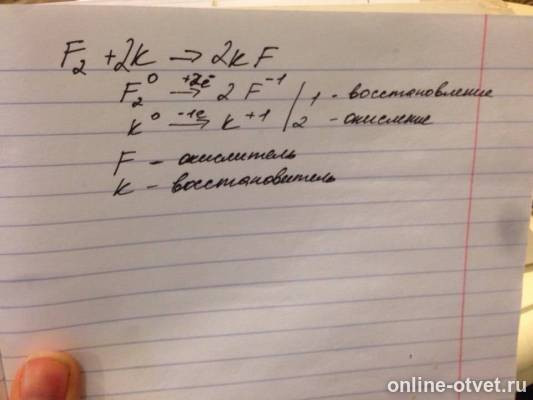 F₂ + 2K → 2KF
F₂⁰ +2ē→ 2F⁻¹ | 1 - восстановление
K⁰ -1ē→ K⁺¹ | 2 - окисление
F - окислитель
K - восстановитель
online-otvet.ru